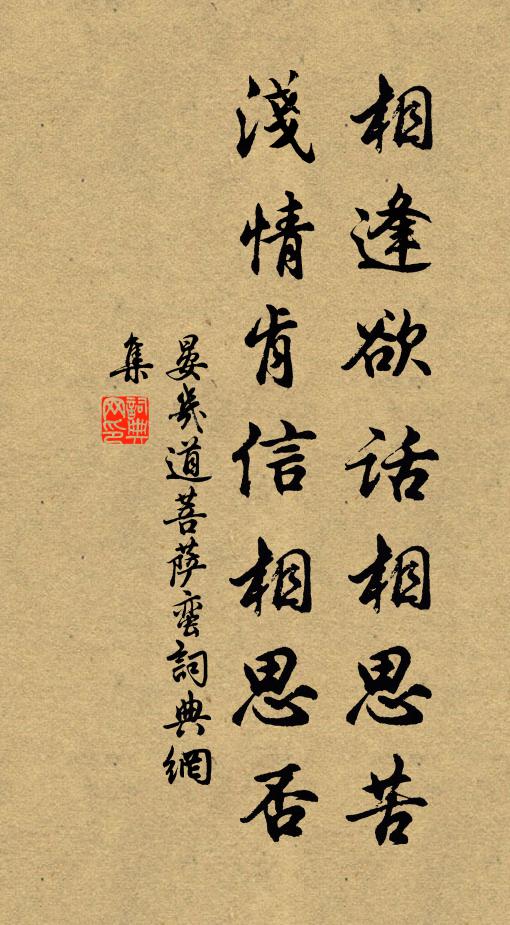 相逢欲话相思苦
淺情肯信相思否
晏幾道菩薩蠻詞典網
集
詞典网印